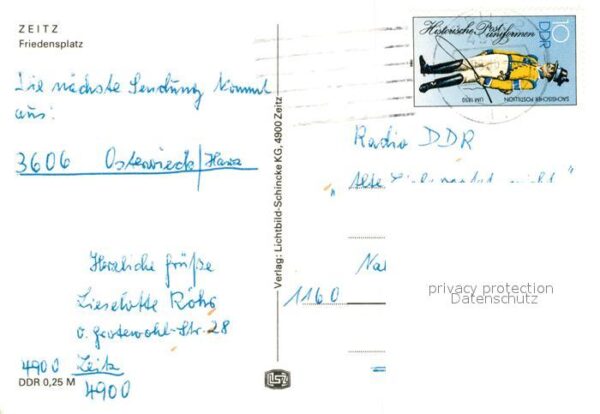 ZEITZ
Friedensplatz
Die nächste Sendung kommt
aus:
3606 Osterwieck/Harz
Herzliche Grüße
Lieselotte Röhr
O. Grotewohl-Str. 28
4900 Zeitz
4900
DDR 0,25 M
Verlag: Lichtbild-Schincke KG, 4900 Zeitz
Historische Post
uniformen
DDR
10
SÄCHSISCHER POSTILLION
UM 1850
Radio DDR
"Alte Liebe rostet nicht"
Na
1160
privacy protection
Datenschutz